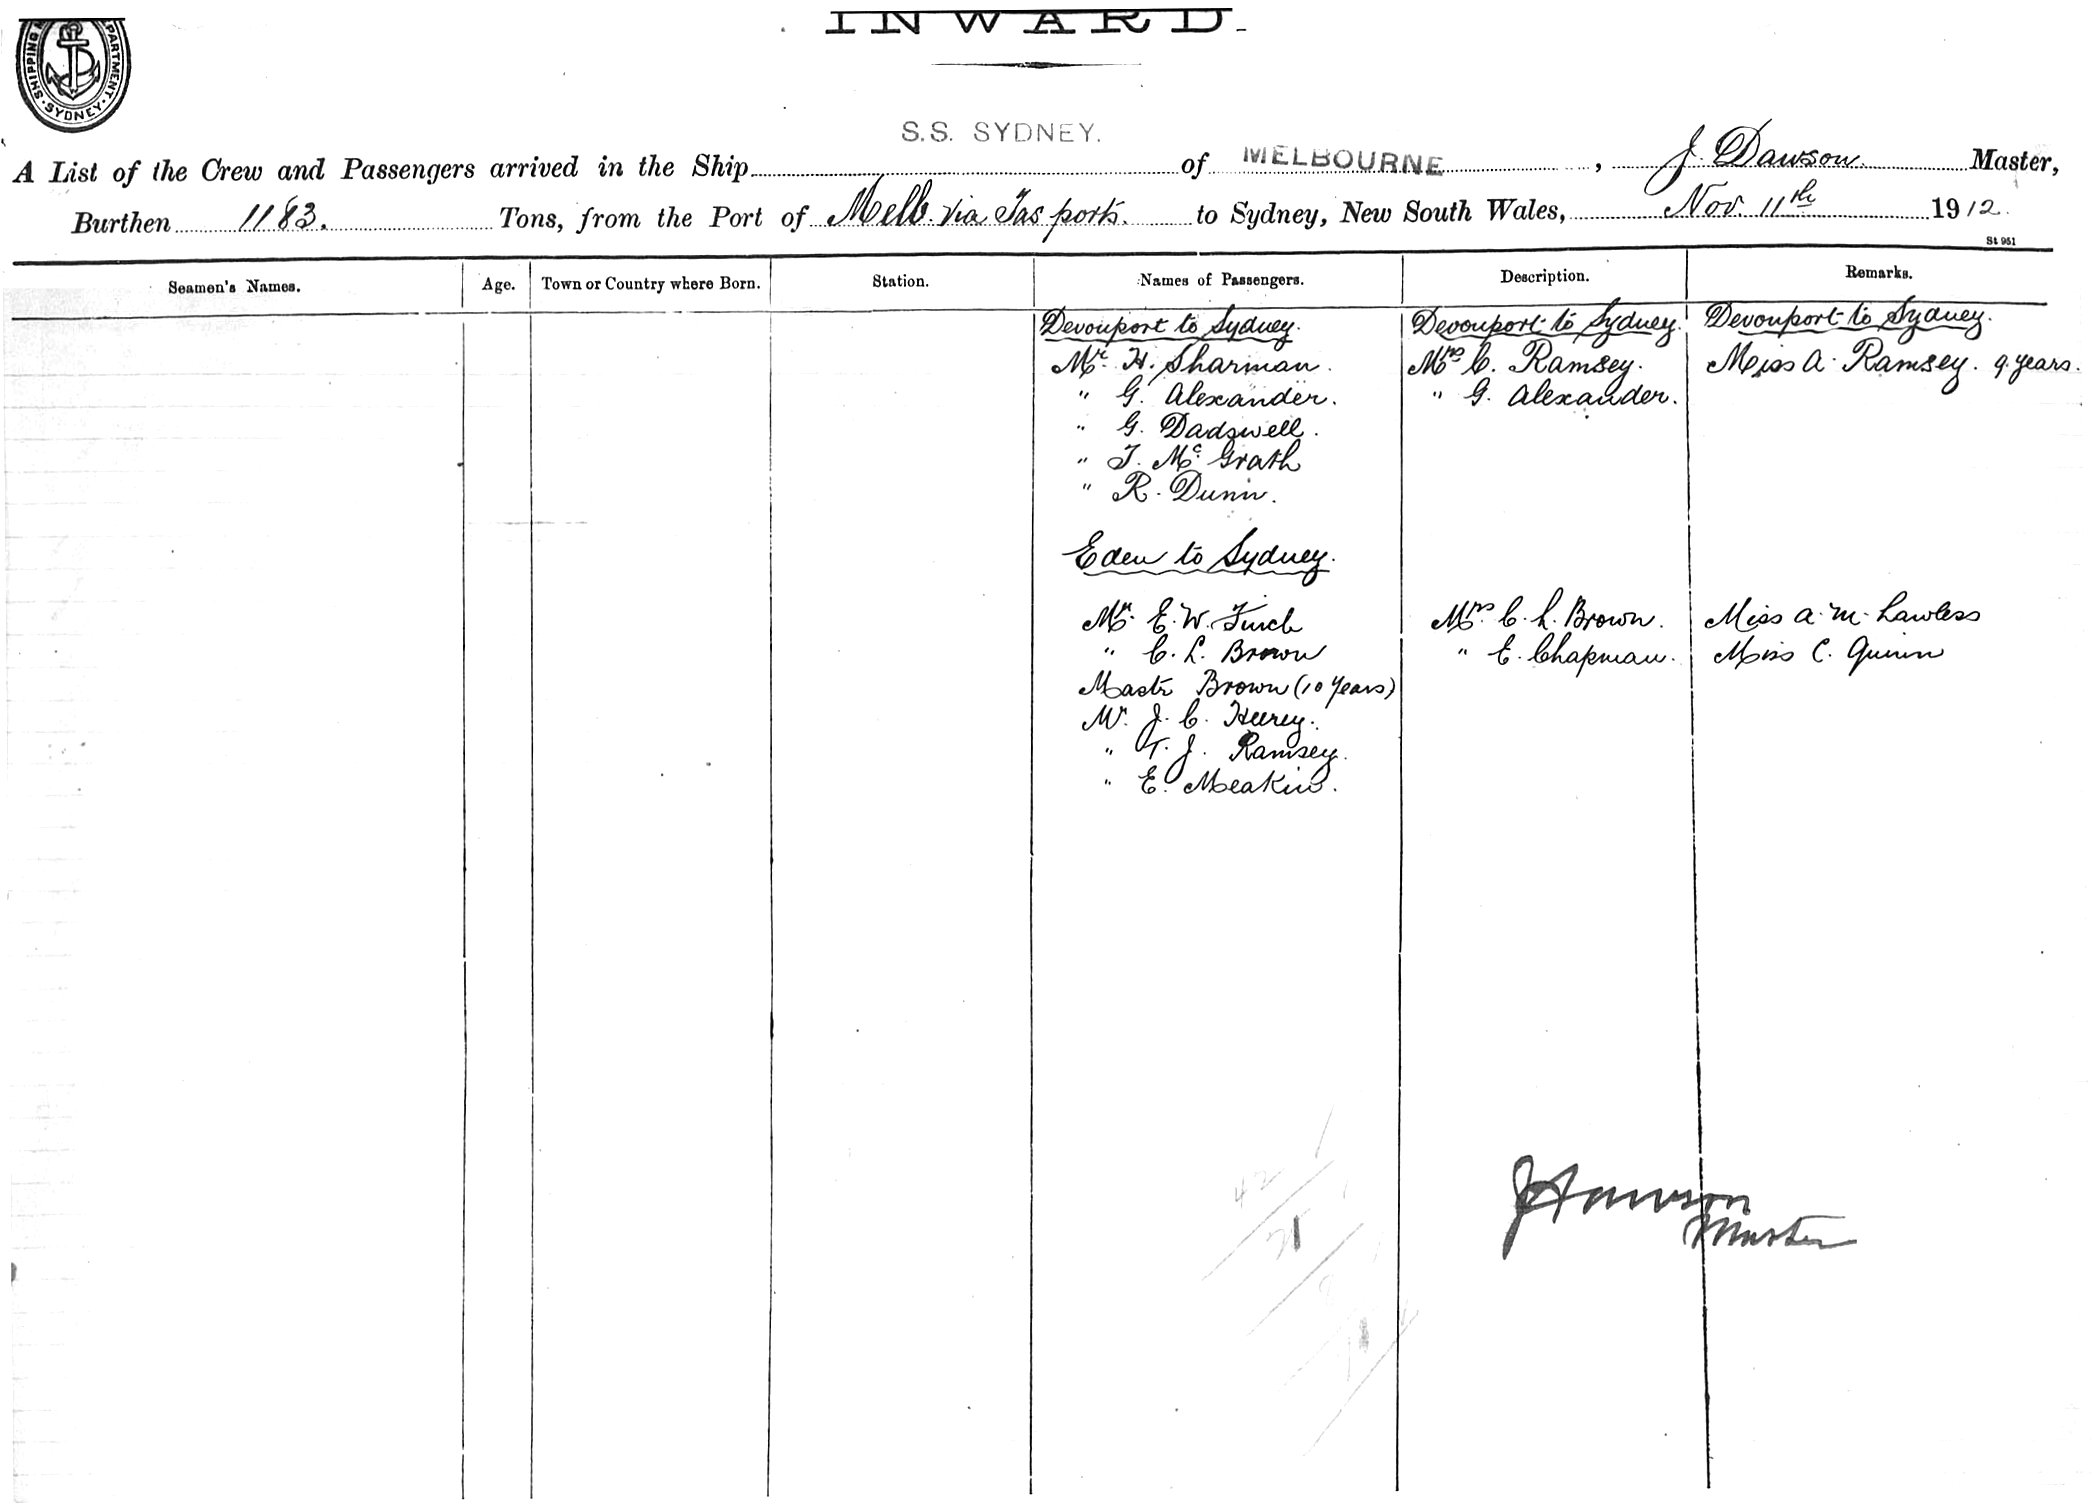 INWARD.
SHIPPING
PARTMENT
SYDNEY
S.S. SYDNEY.
A List of the Crew and Passengers arrived in the Ship of MELBOURNE, J. Dawson Master,
Burthen 1183. Tons, from the Port of Melb. via Tas ports. to Sydney, New South Wales, Nov. 11th 1912.
St 951
Seamen's Names. Age. Town or Country where Born. Station. Names of Passengers. Description. Remarks.
Devonport to Sydney. Devonport to Sydney. Devonport to Sydney.
Mr. H. Sharman. Mrs C. Ramsey. Miss A. Ramsey. 9 years.
" G. Alexander. " G. Alexander.
" G. Dadswell.
" J. Mc Grath
" R. Dunn.
Eden to Sydney.
Mr. E. W. Finch Mrs C. L. Brown. Miss A. M. Lawless
" C. L. Brown " E. Chapman. Miss C. Quinn
Mastr Brown (10 years)
Mr. J. C. Heerey.
" T. J. Ramsey.
" E. Meakin.
42
21
J Dawson
Master